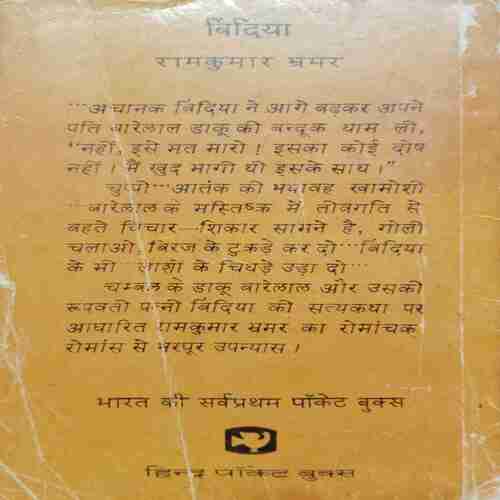 बिंदिया
रामकुमार भ्रमर
···अचानक बिंदिया ने आगे बढ़कर अपने
पति बारेलाल डाकू की बन्दूक थाम ली,
"नहीं, इसे मत मारो ! इसका कोई दोष
नहीं ! मैं खुद भागी थी इसके साथ।"
चुप्पी···आतंक की भयावह खामोशी
···बारेलाल के मस्तिष्क में तीव्रगति से
बहते विचार—शिकार सामने है, गोली
चलाओ, बिरज के टुकड़े कर दो···बिंदिया
के भी लाशों के चिथड़े उड़ा दो···
चम्बल के डाकू बारेलाल और उसकी
रूपवती पत्नी बिंदिया की सत्यकथा पर
आधारित रामकुमार भ्रमर का रोमांचक,
रोमांस से भरपूर उपन्यास !
भारत की सर्वप्रथम पॉकेट बुक्स
हिन्द पॉकेट बुक्स